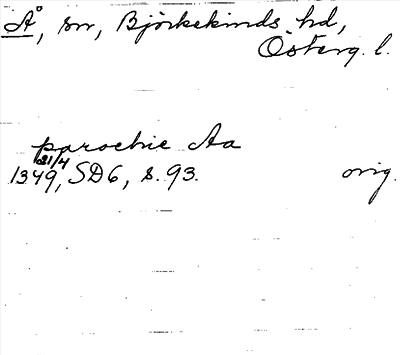 Å, sn, Björkekinds hd,
Österg. l.
parochie Aa
1349 21/4, SD6, s. 93. orig.